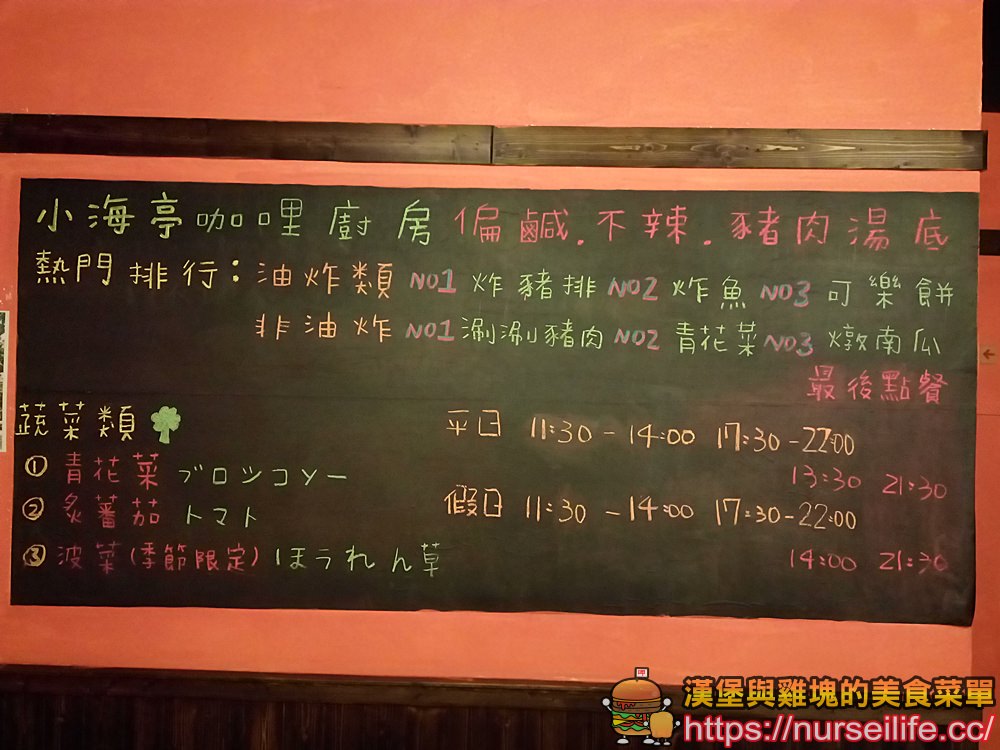 小海亭咖哩廚房偏鹹.不辣.豬肉湯底
熱門排行:油炸類 NO1 炸豬排 NO2 炸魚 NO3 可樂餅
非油炸 NO1 涮涮豬肉 NO2 青花菜 NO3 燉南瓜
最後點餐
蔬菜類
平日 11:30-14:00 17:30-22:00
① 青花菜 ブロッコリー
13:30 21:30
② 炙蕃茄 トマト
假日 11:30-14:00 17:30-22:00
③ 波菜(季節限定) ほうれん草
14:00 21:30
漢堡與雞塊的美食菜單
https://nurseilife.cc/